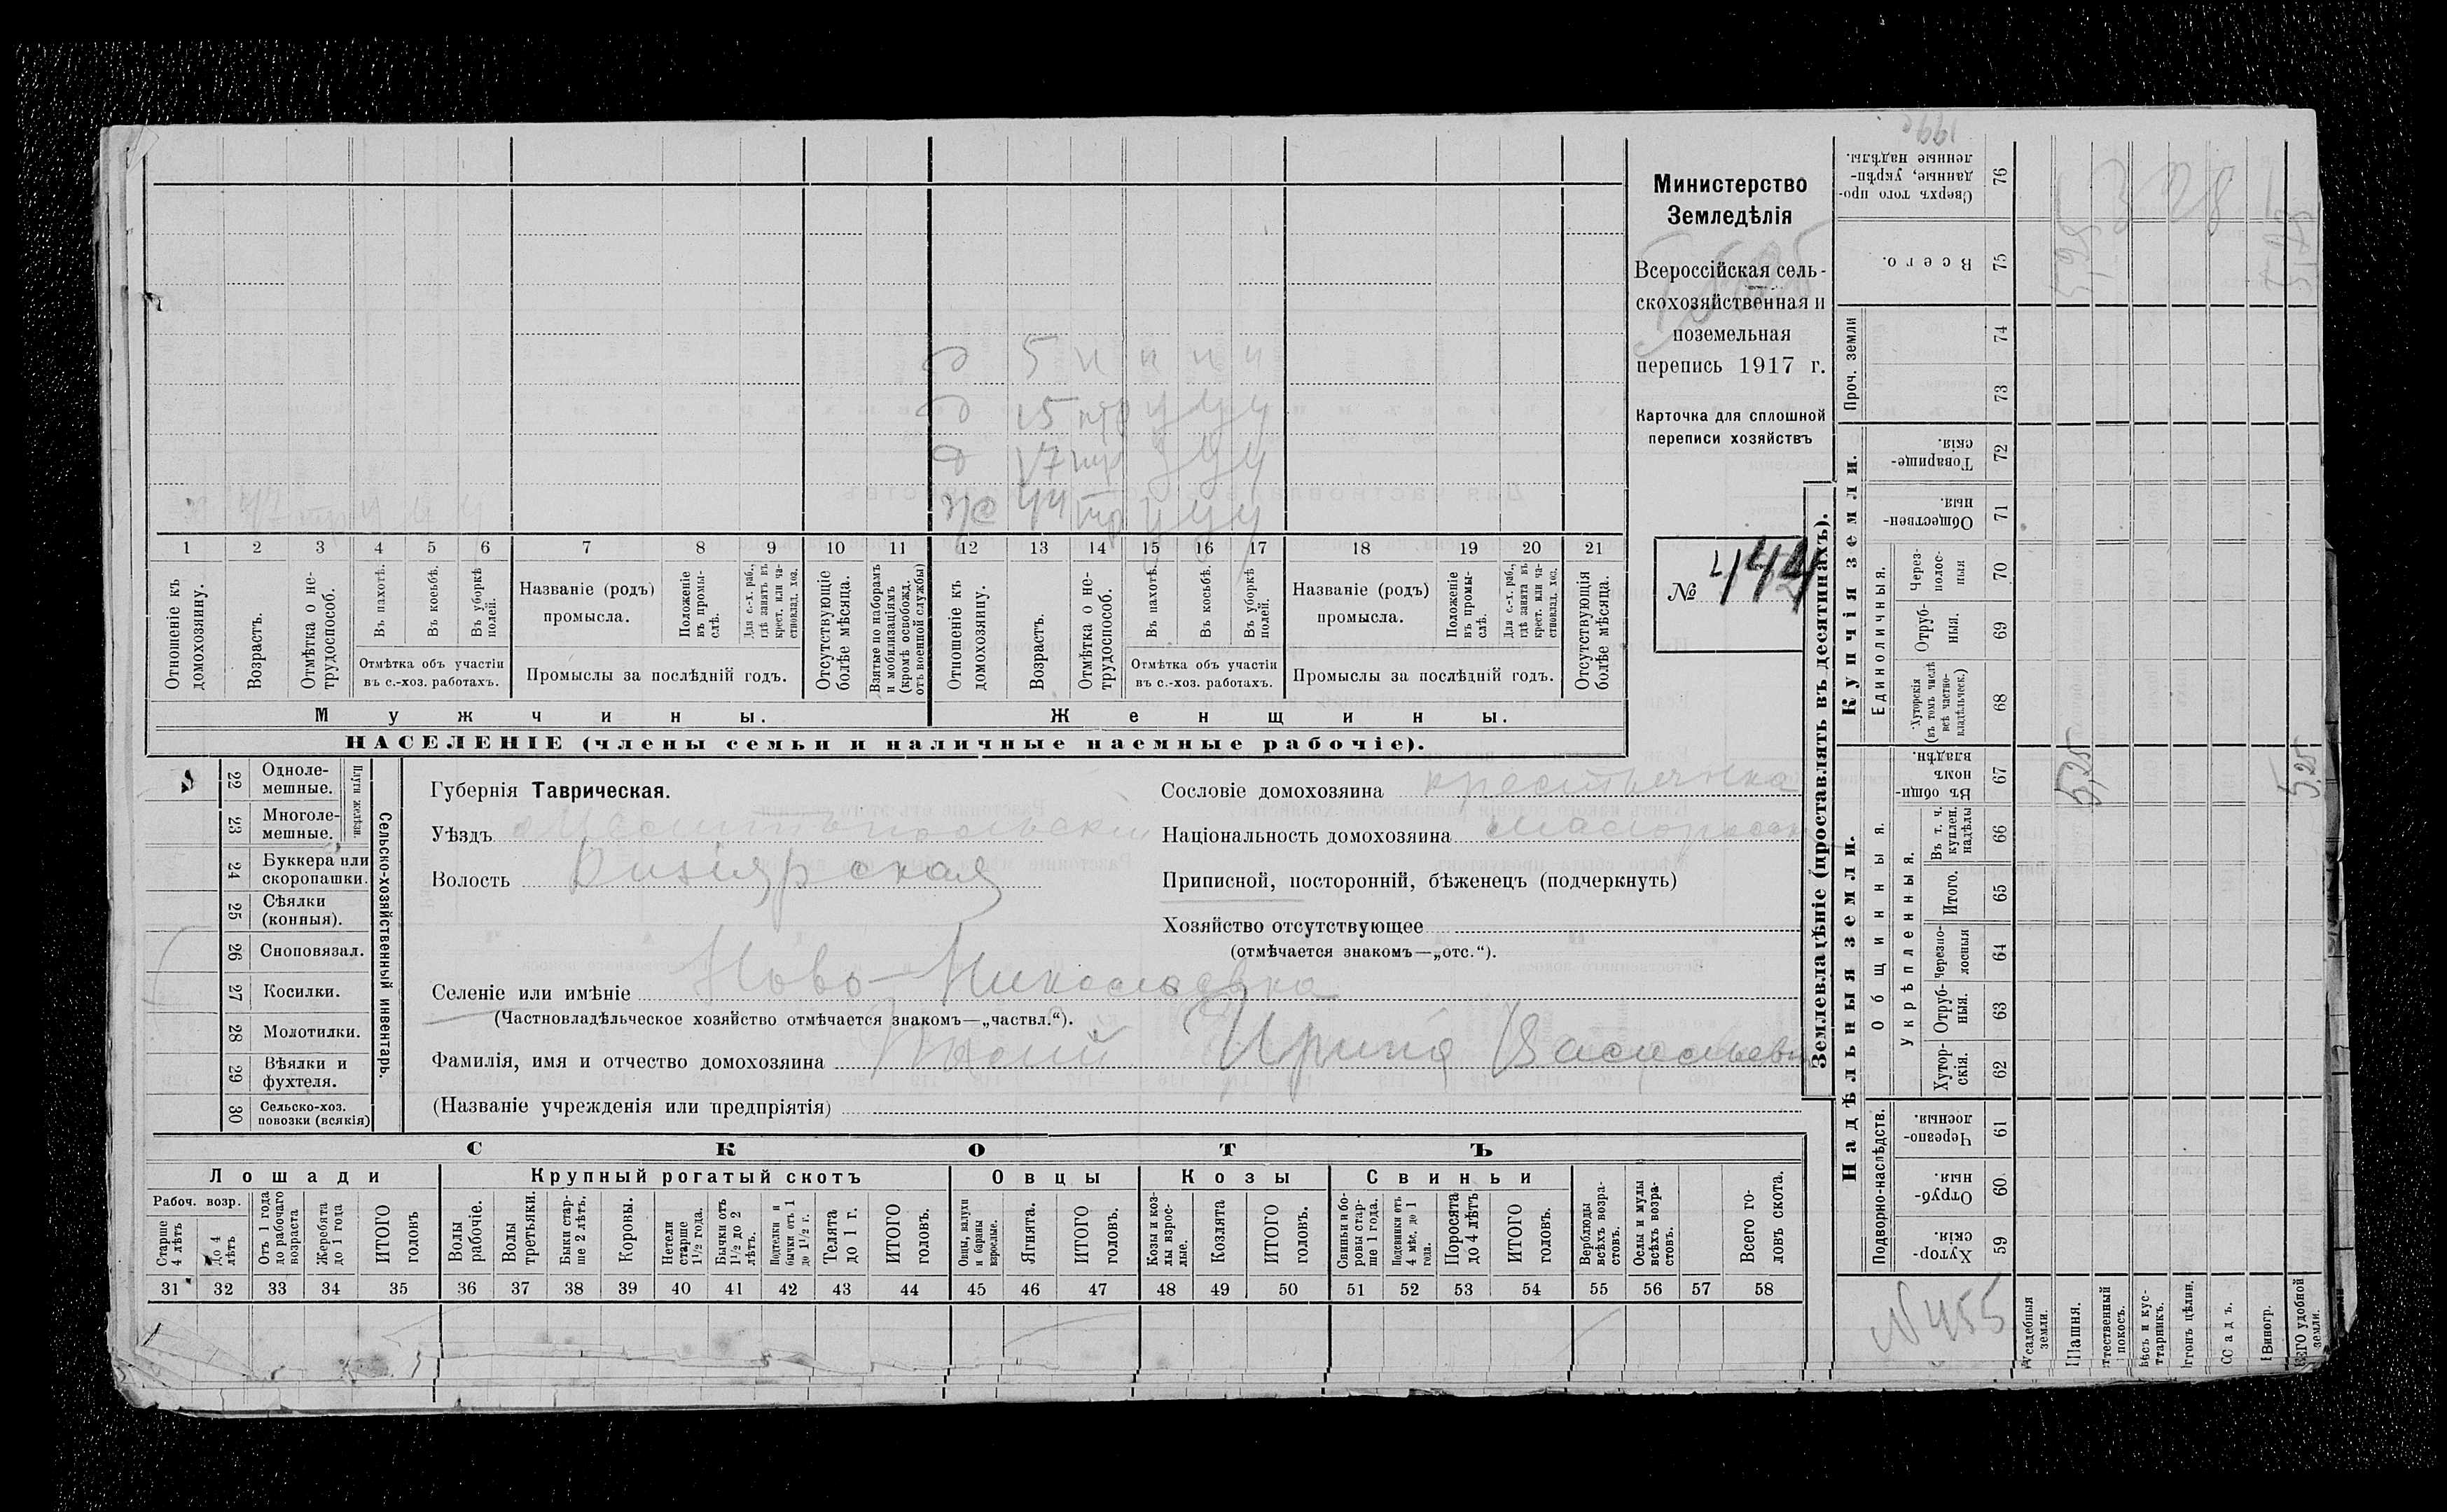 Министерство
Земледѣлія
Всероссійская сель-
скохозяйственная и
поземельная
перепись 1917 г.
Карточка для сплошной
переписи хозяйствъ
№ 444
д 5 н н н н
д 15 у у у
д 17 у у у
44 у у у
1 2 3 4 5 6 7 8 9 10 11 12 13 14 15 16 17 18 19 20 21
Отношеніе къ домохозяину.
Возрастъ.
Отмѣтка о не-трудоспособ.
Въ пахотѣ.
Въ косьбѣ.
Въ уборкѣ полей.
Отмѣтка объ участіи
въ с.-хоз. работахъ.
Названіе (родъ)
промысла.
Положеніе въ промы-слѣ.
Для с.-х. раб., гдѣ занятъ въ крест. или ча-стновлад. хоз.
Промыслы за послѣдній годъ.
Отсутствующіе болѣе мѣсяца.
Взятые по наборамъ и мобилизаціямъ (кромѣ освобожд. отъ военной службы)
Отношеніе къ домохозяину.
Возрастъ.
Отмѣтка о не-трудоспособ.
Въ пахотѣ.
Въ косьбѣ.
Въ уборкѣ полей.
Отмѣтка объ участіи
въ с.-хоз. работахъ.
Названіе (родъ)
промысла.
Положеніе въ промы-слѣ.
Для с.-х. раб., гдѣ занята въ крест. или ча-стновлад. хоз.
Промыслы за послѣдній годъ.
Отсутствующія болѣе мѣсяца.
Мужчины. Женщины.
НАСЕЛЕНІЕ (члены семьи и наличные наемные рабочіе).
22 Одноле-мешные.
23 Многоле-мешные.
Плуги желѣзн.
24 Буккера или скоропашки.
25 Сѣялки (конныя).
26 Сноповязал.
27 Косилки.
28 Молотилки.
29 Вѣялки и фухтеля.
30 Сельско-хоз. повозки (всякія)
Сельско-хозяйственный инвентарь.
Губернія Таврическая.
Уѣздъ Мелитопольскій
Волость Кизіярская
Селеніе или имѣніе Ново-Николаевка
(Частновладѣльческое хозяйство отмѣчается знакомъ—„частвл.“).
Фамилія, имя и отчество домохозяина Ирина Васильевна
(Названіе учрежденія или предпріятія)
Сословіе домохозяина крестьянка
Національность домохозяина
Приписной, посторонній, бѣженецъ (подчеркнуть)
Хозяйство отсутствующее
(отмѣчается знакомъ—„отс.“).
СКОТЪ
Лошади Крупный рогатый скотъ Овцы Козы Свиньи
Рабоч. возр.
Старше 4 лѣтъ
До 4 лѣтъ
Отъ 1 года до рабочаго возраста
Жеребята до 1 года
ИТОГО головъ
Волы рабочіе.
Волы третьяки.
Быки стар-ше 2 лѣтъ.
Коровы.
Нетели старше 1½ года.
Бычки отъ 1½ до 2 лѣтъ.
Подтелки и бычки отъ 1 до 1½ г.
Телята до 1 г.
ИТОГО головъ.
Овцы, валухи и бараны взрослые.
Ягнята.
ИТОГО головъ.
Козы и коз-лы взрос-лые.
Козлята
ИТОГО головъ.
Свиньи и бо-ровы стар-ше 1 года.
Подсвинки отъ 4 мѣс. до 1 года.
Поросята до 4 лѣтъ
ИТОГО головъ.
Верблюды всѣхъ возра-стовъ.
Ослы и мулы всѣхъ возра-стовъ.
Всего го-ловъ скота.
31 32 33 34 35 36 37 38 39 40 41 42 43 44 45 46 47 48 49 50 51 52 53 54 55 56 57 58
Землевладѣніе (проставлять въ десятинахъ).
Надѣльныя земли.
Купчія земли.
Проч. земли
Подворно-наслѣдств.
Общинныя.
Укрѣпленныя.
Единоличныя.
Хутор-скія. 59
Отруб-ныя. 60
Черезпо-лосныя. 61
Хутор-скія. 62
Отруб-ныя. 63
Черезпо-лосныя 64
Итого. 65
Въ т. ч. куплен. надѣлы 66
Въ общи-номъ владѣн. 67
Хуторскія (въ томъ числѣ всѣ частно-владѣльческ.) 68
Отруб-ныя. 69
Через-полос-ныя 70
Обществен-ныя 71
Товарище-скія. 72
73
74
Всего. 75
Сверхъ того про-данные, укрѣп-ленные надѣлы. 76
N 455
Усадебныя земли.
Пашня.
5,25
5,25
Садъ.
Виногр.
удобной земли.
5,25
5,25